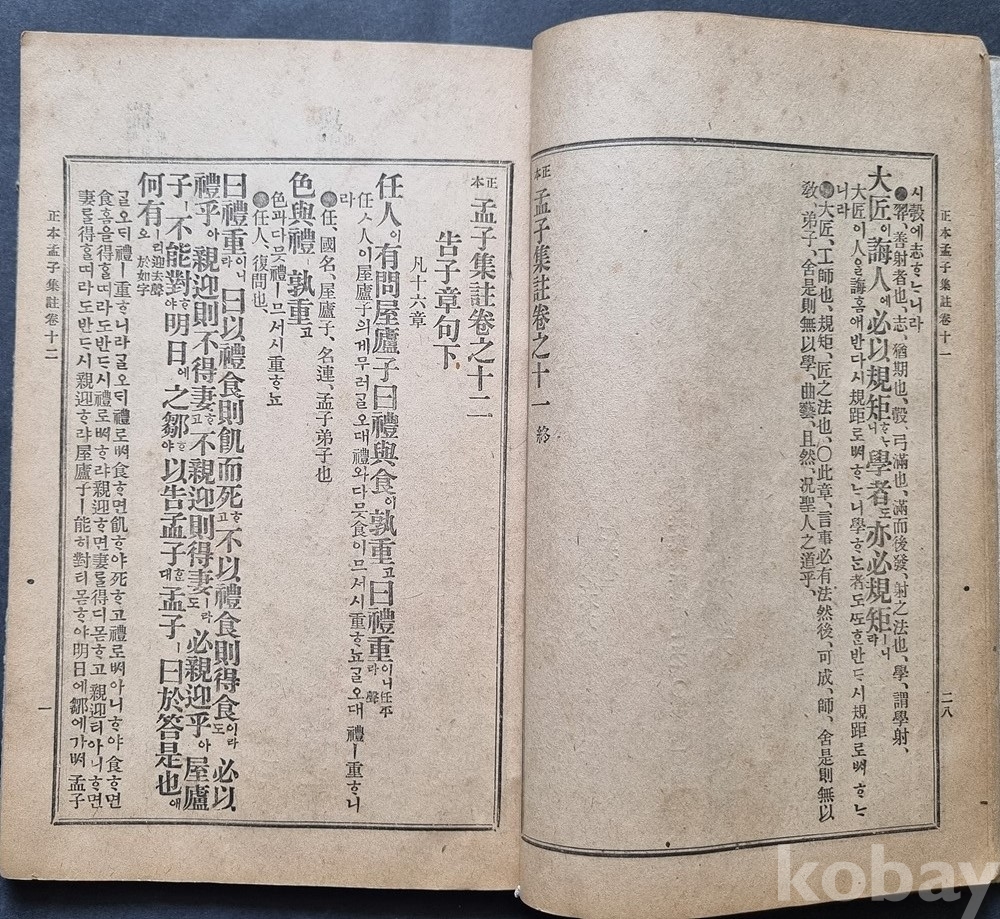 시彀에志ᄒᆞᄂᆞ니라
●羿、善射者也、志、猶期也、彀、弓滿也、滿而後發、射之法也、學、謂學射、
大匠이誨人에必以規矩ᄒᆞᄂᆞ니學者도亦必規矩ㅣ니라
大匠이人을誨홈애반다시規距로ᄡᅥᄒᆞᄂᆞ니學ᄒᆞᄂᆞᆫ者도ᄯᅩᄒᆞᆫ반ᄃᆞ시規距로ᄡᅥᄒᆞᄂᆞ
니라
●大匠、工師也、規矩、匠之法也、○此章、言事必有法然後、可成、師、舍是則無以
敎、弟子、舍是則無以學、曲藝、且然、况聖人之道乎、
正本 孟子集註卷之十一 終
正本孟子集註卷十一
二八
正本 孟子集註卷之十二
告子章句下
凡十六章
任人이有問屋廬子曰禮與食이孰重고曰禮重이니라 任平聲
任ㅅ人이屋廬子의게무러ᄀᆞᆯ오대禮와다ᄆᆞᆺ食이므서시重ᄒᆞ뇨ᄀᆞᆯ오대禮ㅣ重ᄒᆞ니
라
●任、國名、屋廬子、名連、孟子弟子也
色與禮ㅣ孰重고
色과다ᄆᆞᆺ禮ㅣ므서시重ᄒᆞ뇨
●任人、復問也、
曰禮重이니라曰以禮食則飢而死ᄒᆞ고不以禮食則得食이라도必以
禮乎아親迎則不得妻ᄒᆞ고不親迎則得妻ㅣ라도必親迎乎아屋廬
子ㅣ不能對ᄒᆞ야明日에之鄒ᄒᆞ야以告孟子ᄒᆞᆫ대孟子ㅣ曰於答是也애
何有ㅣ리오 迎去聲 於如字
ᄀᆞᆯ오ᄃᆡ禮ㅣ重ᄒᆞ니라ᄀᆞᆯ오ᄃᆡ禮로ᄡᅥ食ᄒᆞ면飢ᄒᆞ야死ᄒᆞ고禮로ᄡᅥ아니ᄒᆞ야食ᄒᆞ면
食홈을得ᄒᆞᆯᄯᅵ라도반ᄃᆞ시禮로ᄡᅥᄒᆞ랴親迎ᄒᆞ면妻를得디몯ᄒᆞ고親迎티아니ᄒᆞ면
妻를得ᄒᆞᆯᄯᅵ라도반ᄃᆞ시親迎ᄒᆞ랴屋廬子ㅣ能히對티몯ᄒᆞ야明日에鄒에가ᄡᅥ孟子
正本孟子集註卷十二
一
kobay